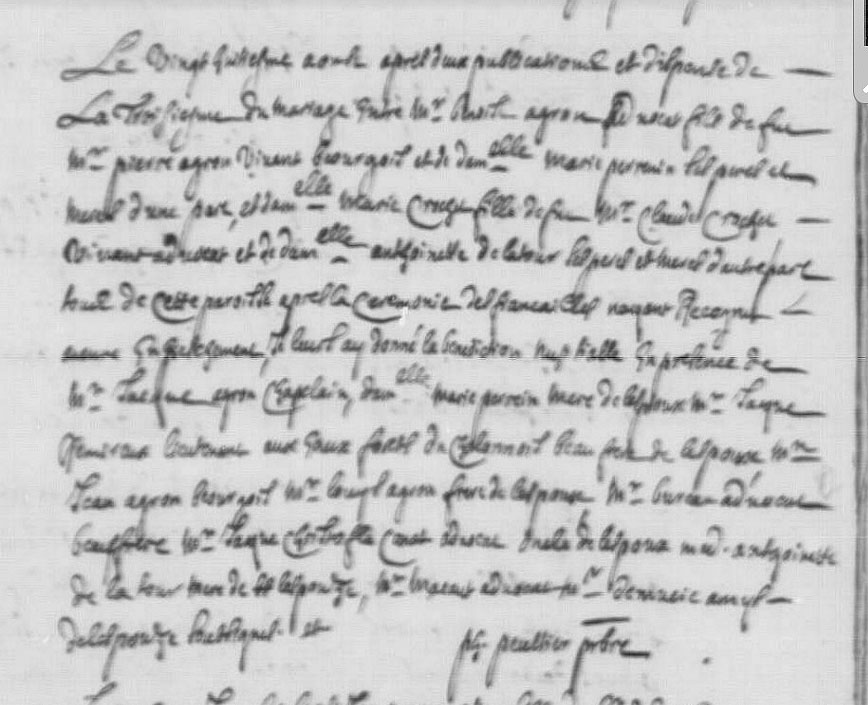 Le vingt huitiesme aoust apres deux publications et dispense de
La troisiesme du mariage entre Mr Benoit agron advocat fils de feu
Mre pierre agron vivant bourgois et de damelle marie perrenin ses pere et
mere d'une part, et damelle Marie Crochet fille de feu Mr Claude Crochet
vivant advocat et de damelle anthoinette de latour ses pere et mere d'autre part
tous de cette paroisse apres la ceremonie des fiancailles nayant Recognu
aucune Empeschement, Je leurs ay donné la benediction nuptialle En presence de
Mre Jacque agron Chapelain, damelle marie perrenin mere de lespoux Mr Jacque
lieutenant aux Eaux forest du Chalonnois beau frere de lespouse Mre
Jean agron bourgois Mr louys agron frere de lespoux Mr bureau advocat
beaufrere Mr Jaque Christofle Canat advocat oncle de lespoux mad. anthoinette
de la tour mere de lespouze, Mr advocat Mr amys
de lespouze soubsignes et
ph. peultier pbre